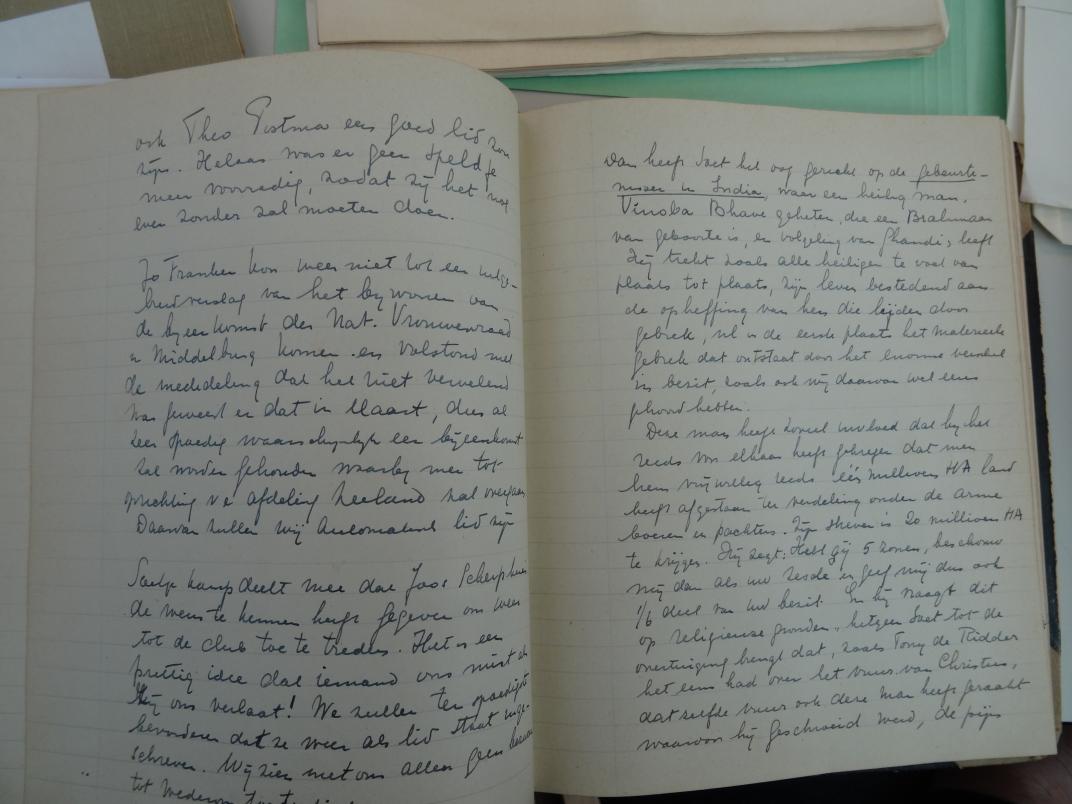 ook Theo Postma een goed lid zou
zijn. Helaas was er geen speldje
meer voorradig, zodat zij het nog
even zonder zal moeten doen.
Jo Franken kon weer niet tot een uitge-
breid verslag van het bijwonen van
de bijeenkomst der Nat. Vrouwenraad
in Middelburg komen en volstond met
de mededeling dat het niet vervelend
was geweest en dat in Maart, dus al
zeer spoedig waarschijnlijk een bijeenkomst
zal worden gehouden waarbij men tot
oprichting v/e afdeling Zeeland zal overgaan
Daarvan zullen wij automatisch lid zijn
kamp deelt mee dat Joos
de wens te kennen heeft gegeven om weer
tot de club toe te treden. Het is een
prettig idee dat iemand ons mist als
zij ons verlaat! We zullen ten spoedigste
bevorderen dat ze weer als lid staat inge-
schreven. Wij zien met ons allen geen
tot wederom
Dan heeft Saet het oog gericht op de gebeurte-
nissen in India, waar een heilig man,
Vinoba Bhave geheten, die een Brahmaan
van geboorte is, en volgeling van Ghandi, leeft
Hij trekt zoals alle heiligen te voet van
plaats tot plaats, zijn leven bestedend aan
de opheffing van hen die lijden door
gebrek, nl in de eerste plaats het materieele
gebrek dat ontstaat door het enorme verschil
in bezit, zoals ook wij daarvan wel eens
gehoord hebben.
Deze man heeft zoveel invloed dat hij het
reeds voor elkaar heeft gekregen dat men
hem vrijwillig reeds één millioen HA land
heeft afgestaan ter verdeling onder de arme
boeren en pachters. Zijn streven is 20 millioen HA
te krijgen. Hij zegt: Hebt gij 5 zonen, beschouw
mij dan als uw zesde en geef mij dus ook
1/6 deel van uw bezit. En hij vraagt dit
op religieuse gronden, hetgeen Saet tot de
overtuiging brengt dat, zoals Tony de Ridder
het eens had over het vuur van Christus,
datzelfde vuur ook deze man heeft geraakt
waarvoor hij geschroeid werd, de pijn